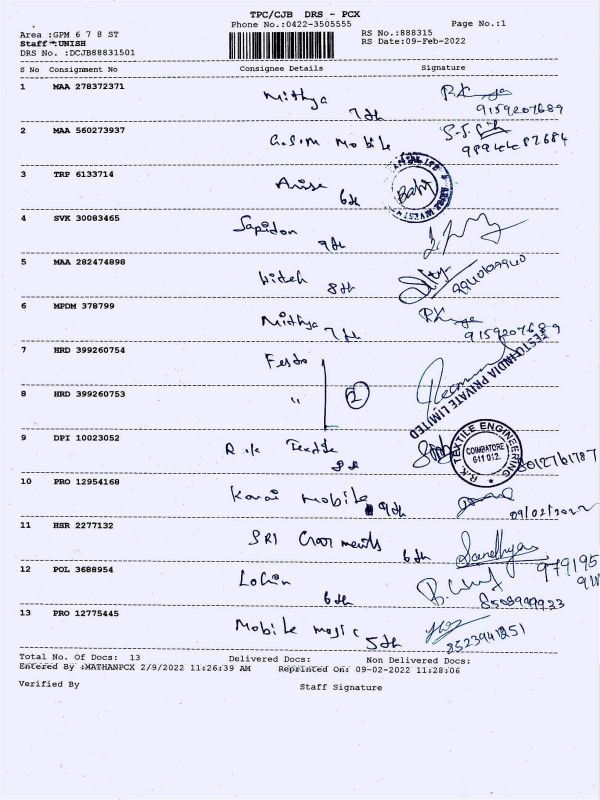 TPC/CJB DRS - PCX
Phone No.:0422-3505555 Page No.:1
Area :GPM 6 7 8 ST RS No.:888315
Staff :UNISH RS Date:09-Feb-2022
DRS No. :DCJB88831501
S No Consignment No Consignee Details Signature
1 MAA 278372371 Mithya 7th 9159207689
2 MAA 560273937 G.S.M Mobile
3 TRP 6133714 Arise 6th
4 SVK 30083465 9th
5 MAA 282474898 8th
6 MPDM 378799 Mithya 7th 9159207689
7 HRD 399260754 Festo INDIA PRIVATE LIMITED
8 HRD 399260753 " 2
9 DPI 10023052 R.K Textile R.K. TEXTILE ENGINEERING COIMBATORE 641 012.
10 PRO 12954168 Kovai Mobile 9th 09/02/2022
11 HSR 2277132 SRI Garments 6th Sandhya
12 POL 3688954 6th
13 PRO 12775445 Mobile magic 5th
Total No. Of Docs: 13 Delivered Docs: Non Delivered Docs:
Entered By :MATHANPCX 2/9/2022 11:26:39 AM Reprinted On: 09-02-2022 11:28:06
Verified By Staff Signature